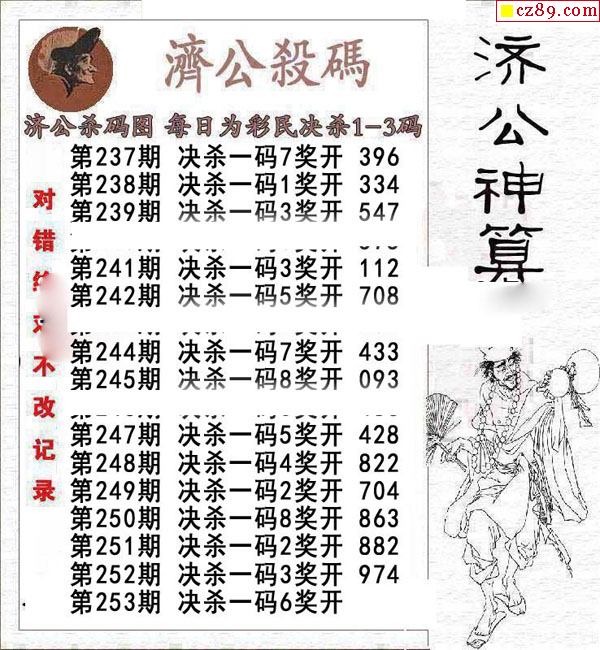 cz89.com
濟公殺碼
济公杀码图 每日为彩民决杀1-3码
第237期 决杀一码7奖开 396
第238期 决杀一码1奖开 334
第239期 决杀一码3奖开 547
第241期 决杀一码3奖开 112
第242期 决杀一码5奖开 708
第244期 决杀一码7奖开 433
第245期 决杀一码8奖开 093
第247期 决杀一码5奖开 428
第248期 决杀一码4奖开 822
第249期 决杀一码2奖开 704
第250期 决杀一码8奖开 863
第251期 决杀一码2奖开 882
第252期 决杀一码3奖开 974
第253期 决杀一码6奖开
对错
不改记录
济公神算